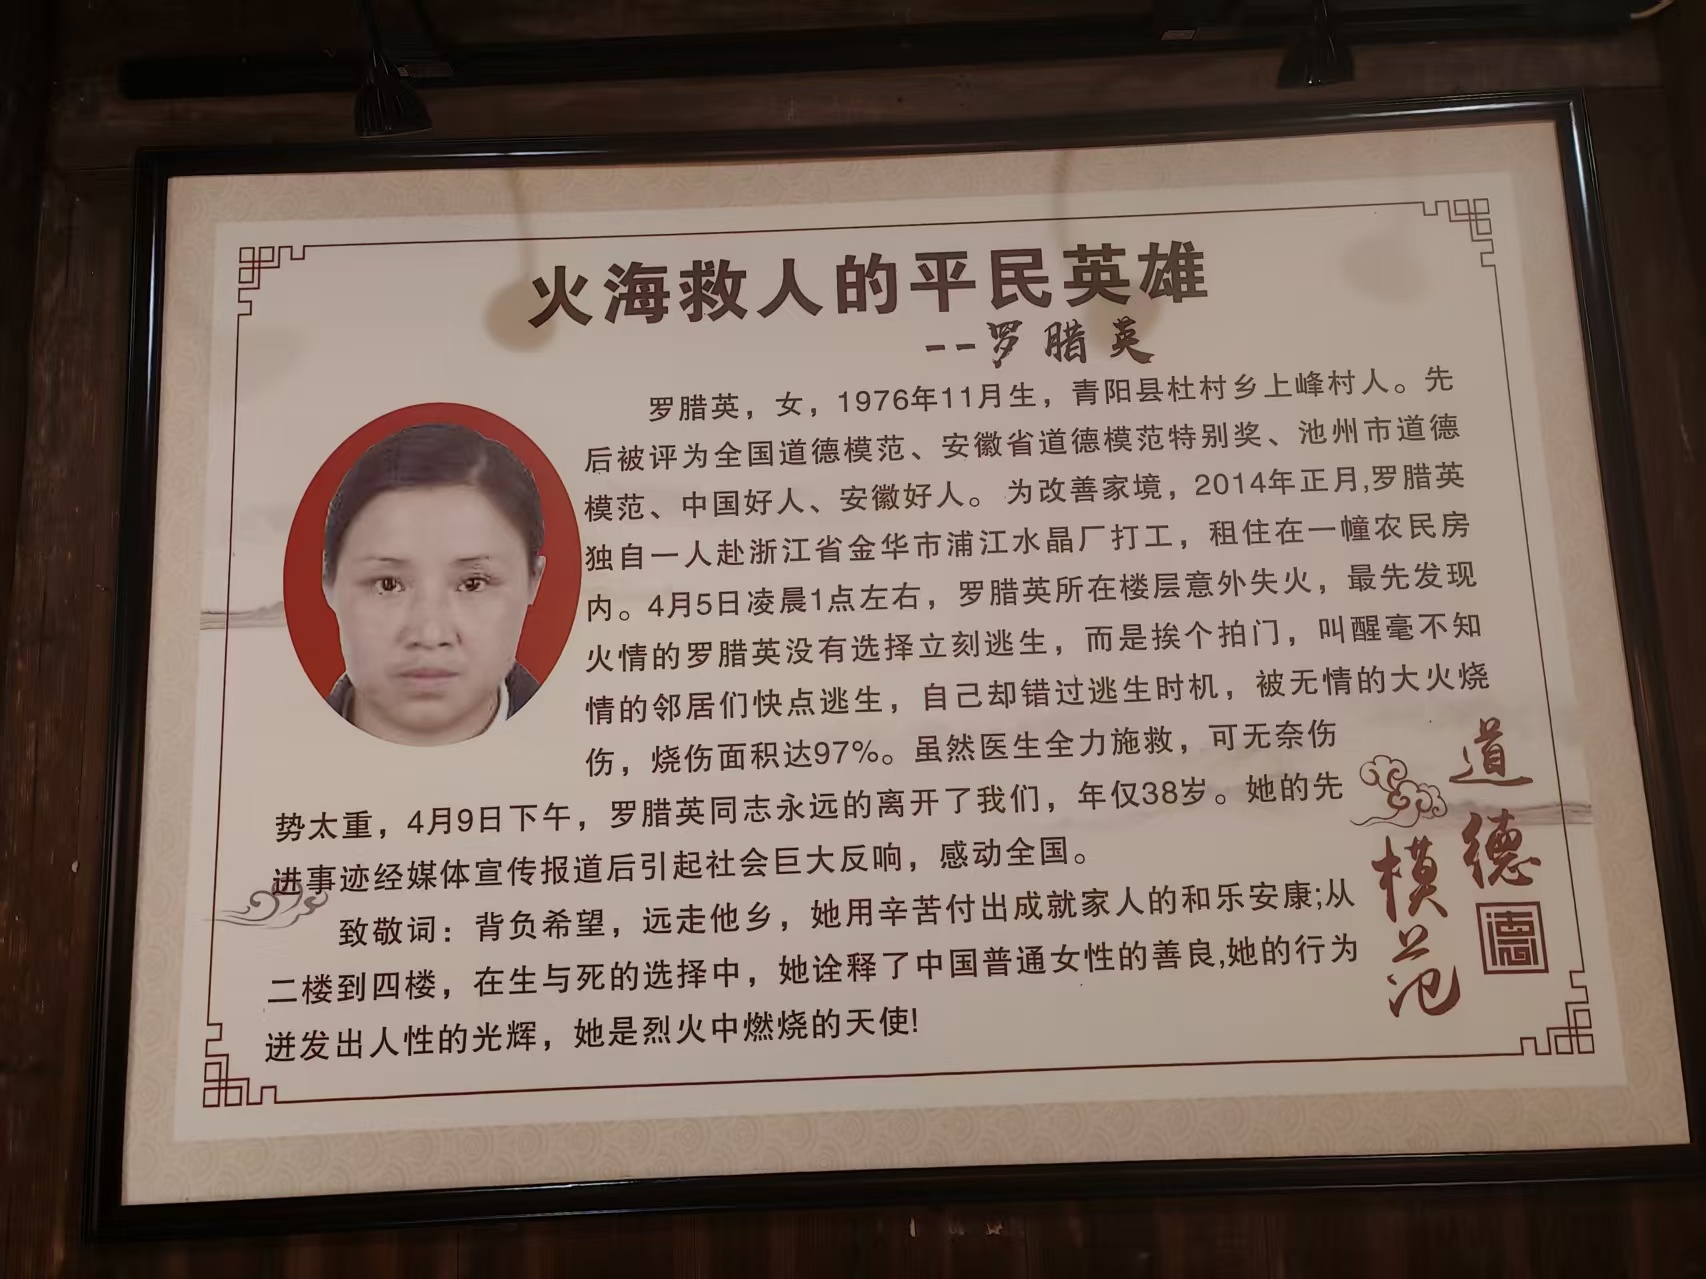 火海救人的平民英雄
--罗腊英
罗腊英，女，1976年11月生，青阳县杜村乡上峰村人。先
后被评为全国道德模范、安徽省道德模范特别奖、池州市道德
模范、中国好人、安徽好人。为改善家境，2014年正月,罗腊英
独自一人赴浙江省金华市浦江水晶厂打工，租住在一幢农民房
内。4月5日凌晨1点左右，罗腊英所在楼层意外失火，最先发现
火情的罗腊英没有选择立刻逃生，而是挨个拍门，叫醒毫不知
情的邻居们快点逃生，自己却错过逃生时机，被无情的大火烧
伤，烧伤面积达97%。虽然医生全力施救，可无奈伤
势太重，4月9日下午，罗腊英同志永远的离开了我们，年仅38岁。她的先
进事迹经媒体宣传报道后引起社会巨大反响，感动全国。
致敬词：背负希望，远走他乡，她用辛苦付出成就家人的和乐安康;从
二楼到四楼，在生与死的选择中，她诠释了中国普通女性的善良,她的行为
迸发出人性的光辉，她是烈火中燃烧的天使!
道德
模范